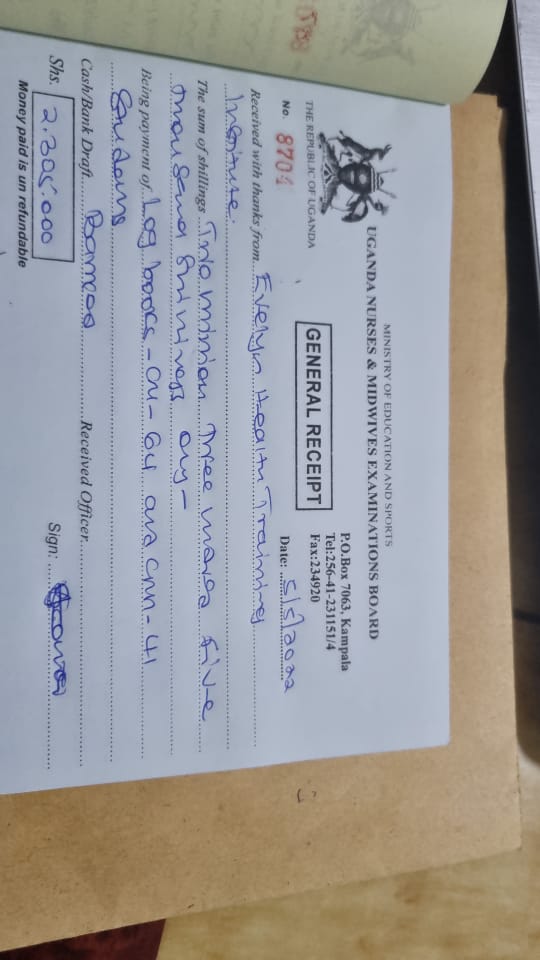 MINISTRY OF EDUCATION AND SPORTS
UGANDA NURSES & MIDWIVES EXAMINATIONS BOARD
THE REPUBLIC OF UGANDA
P.O.Box 7063, Kampala
Tel:256-41-231151/4
Fax:234920
No. 8701
GENERAL RECEIPT
Date: 5/5/2022
Received with thanks from Evelyn Health Training
Institute.
The sum of shillings Two million three
thousand only -
Being payment of Log books - CN - 64 and CMN - 41
Students
Cash/Bank Draft Received Officer
Shs. 2,305,000 Sign:
Money paid is un refundable